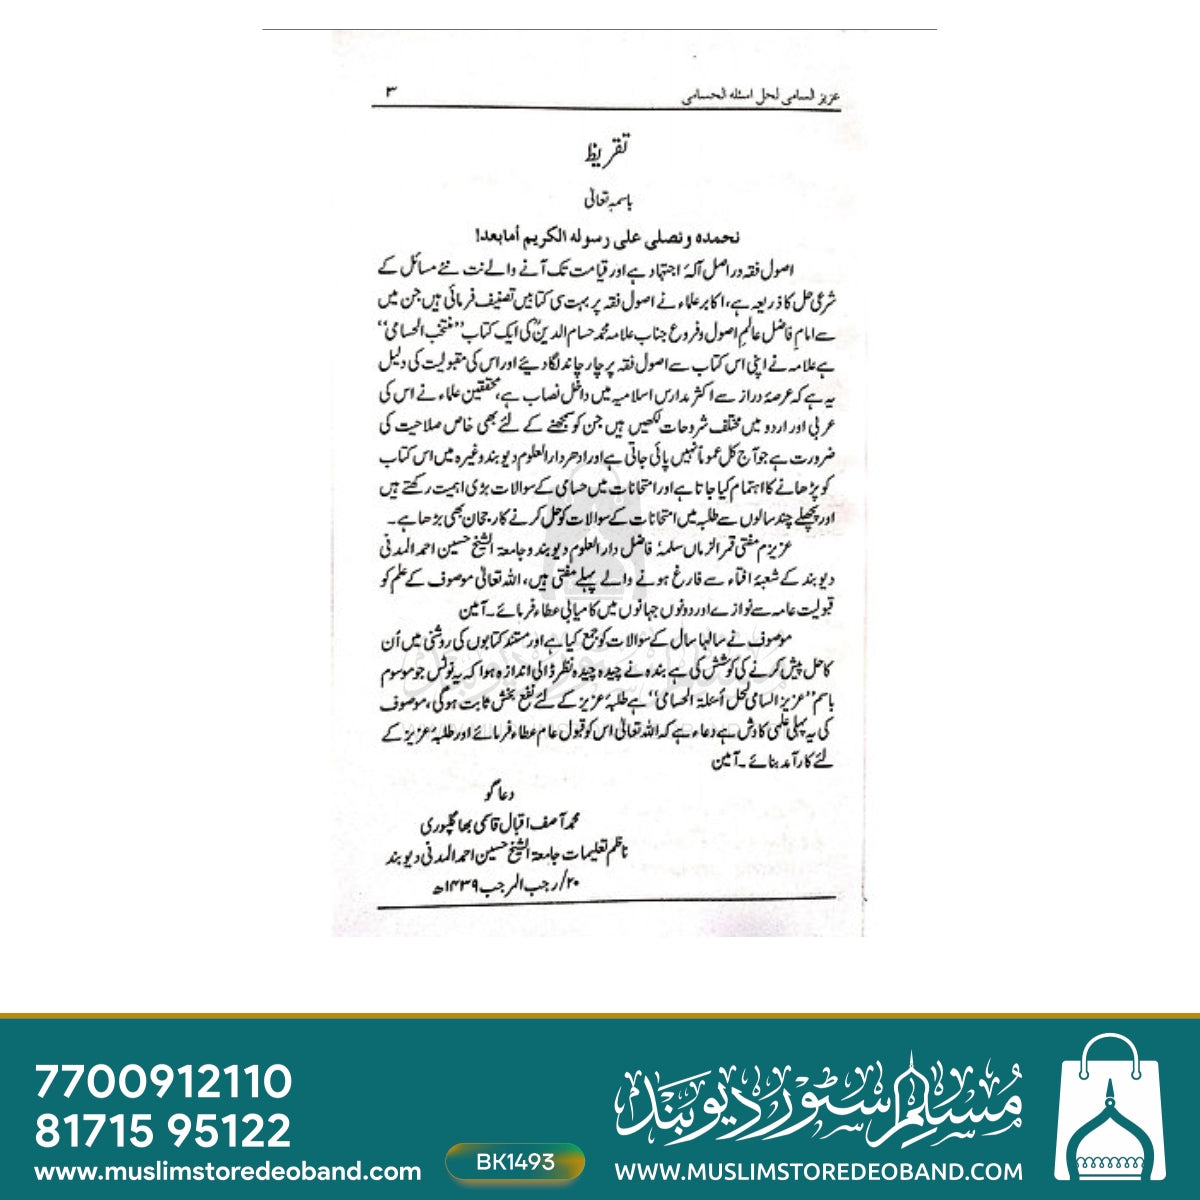 عزیز السامی لحل اسئلہ الحسامی ۳
تقریظ
باسمہ تعالیٰ
نحمدہ ونصلی علی رسولہ الکریم أمابعد!
اصول فقہ دراصل آلۂ اجتہاد ہے اور قیامت تک آنے والے نت نئے مسائل کے
شرعی حل کا ذریعہ ہے، اکابر علماء نے اصول فقہ پر بہت سی کتابیں تصنیف فرمائی ہیں جن میں
سے امام فاضل عالم اصول وفروع جناب علامہ محمد حسام الدینؒ کی ایک کتاب ’’منتخب الحسامی‘‘
ہے علامہ نے اپنی اس کتاب سے اصول فقہ پر چار چاند لگا دیئے اور اس کی مقبولیت کی دلیل
یہ ہے کہ عرصۂ دراز سے اکثر مدارس اسلامیہ میں داخل نصاب ہے، محققین علماء نے اس کی
عربی اور اردو میں مختلف شروحات لکھیں ہیں جن کو سمجھنے کے لئے بھی خاص صلاحیت کی
ضرورت ہے جو آج کل عموماً نہیں پائی جاتی ہے اور ادھر دار العلوم دیوبند وغیرہ میں اس کتاب
کو پڑھانے کا اہتمام کیا جاتا ہے اور امتحانات میں حسامی کے سوالات بڑی اہمیت رکھتے ہیں
اور پچھلے چند سالوں سے طلبہ میں امتحانات کے سوالات کو حل کرنے کا رجحان بھی بڑھا ہے۔
عزیزم مفتی قمر الزماں سلمہٗ فاضل دار العلوم دیوبند و جامعۃ الشیخ حسین احمد المدنی
دیوبند کے شعبۂ افتاء سے فارغ ہونے والے پہلے مفتی ہیں، اللہ تعالیٰ موصوف کے علم کو
قبولیت عامہ سے نوازے اور دونوں جہانوں میں کامیابی عطاء فرمائے۔ آمین
موصوف نے سالہا سال کے سوالات کو جمع کیا ہے اور مستند کتابوں کی روشنی میں اُن
کا حل پیش کرنے کی کوشش کی ہے بندہ نے چیدہ چیدہ نظر ڈالی اندازہ ہوا کہ یہ نوٹس جو موسوم
باسم ’’عزیز السامی لحل أسئلۃ الحسامی‘‘ ہے طلبۂ عزیز کے لئے نفع بخش ثابت ہوگی، موصوف
کی یہ پہلی علمی کاوش ہے دعاء ہے کہ اللہ تعالیٰ اس کو قبول عام عطاء فرمائے اور طلبۂ عزیز کے
لئے کارآمد بنائے۔ آمین
دعا گو
محمد آصف اقبال قاسمی بھاگلپوری
ناظم تعلیمات جامعۃ الشیخ حسین احمد المدنی دیوبند
۲۰/رجب المرجب ۱۴۳۹ھ
7700912110
81715 95122
www.muslimstoredeoband.com
BK1493
مسلم سٹور دیوبند
WWW.MUSLIMSTOREDEOBAND.COM